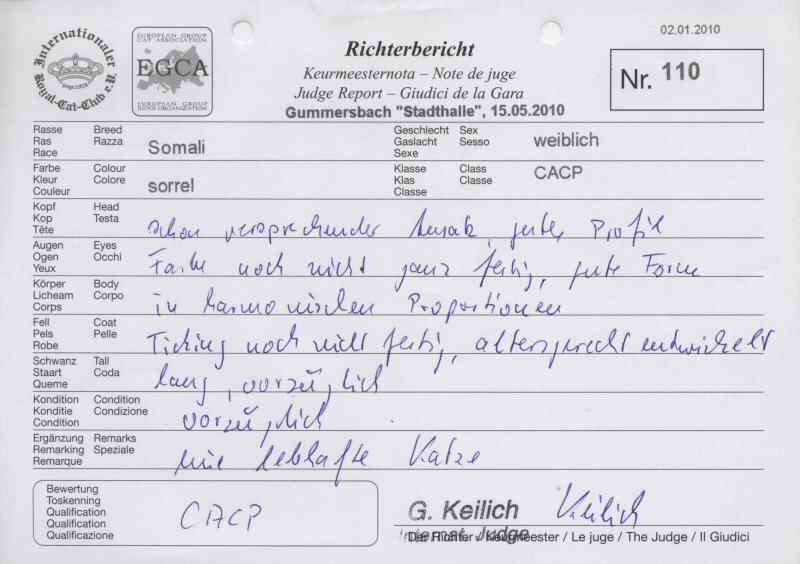 Internationaler Royal-Cat-Club e.V.
EUROPEAN GROUP
CAT ASSOCIATION
EGCA
EUROPEAN GROUP
JUDGE ORGANIZATION
02.01.2010
Richterbericht
Keurmeesternota – Note de juge
Judge Report – Giudici de la Gara
Gummersbach "Stadthalle", 15.05.2010
Nr. 110
Rasse Breed
Ras Razza
Race
Somali
Geschlecht Sex
Gaslacht Sesso
Sexe
weiblich
Farbe Colour
Kleur Colore
Couleur
sorrel
Klasse Class
Klas Classe
Classe
CACP
Kopf Head
Kop Testa
Tête
schon versprechender Ansatz, gutes Profil
Augen Eyes
Ogen Occhi
Yeux
Farbe noch nicht ganz fertig, gute Form
Körper Body
Licheam Corpo
Corps
in harmonischen Proportionen
Fell Coat
Pels Pelle
Robe
Ticking noch nicht fertig, altersgerecht entwickelt
Schwanz Tall
Staart Coda
Queme
lang, vorzüglich
Kondition Condition
Konditie Condizione
Condition
vorzüglich
Ergänzung Remarks
Remarking Speziale
Remarque
eine lebhafte Katze
Bewertung
Toskenning
Qualification
Qualification
Qualificazione
CACP
G. Keilich
Keilich
Internat. Judge
Der Richter / Keurmeester / Le juge / The Judge / Il Giudici